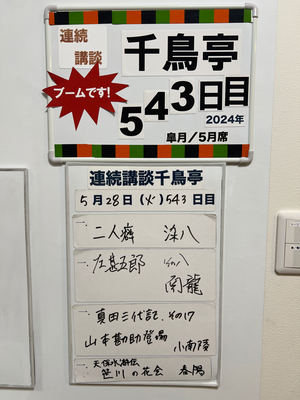 連続
講談
千鳥亭
ブームです!
543日目
2024年
皐月/5月席
連続講談千鳥亭
5月28日(火)543日目
一、二人癖 染八
一、左甚五郎 その八
南龍
一、真田三代記、その17
山本勘助登場 小南陵
一、天保水滸伝
笹川の花会 春陽